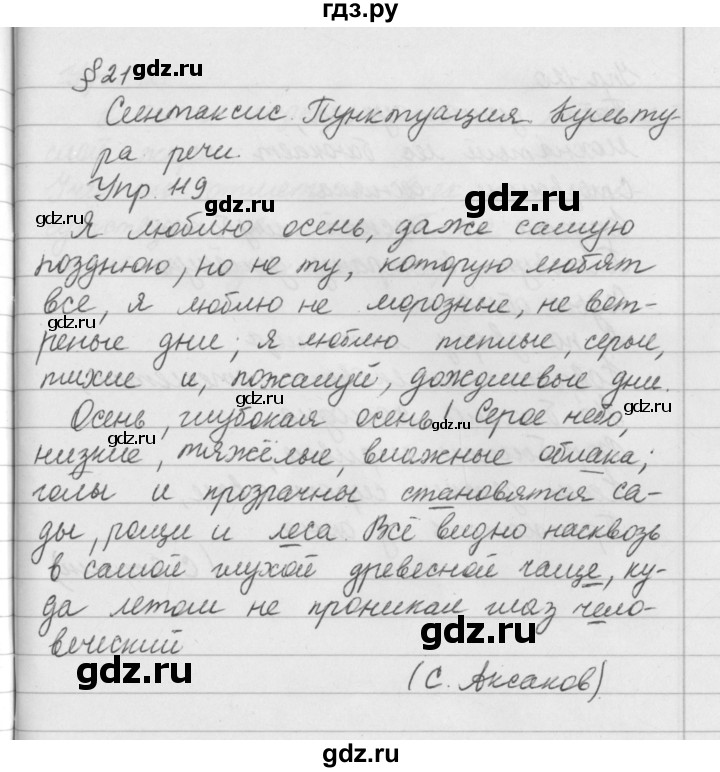 гдз.ру
§21
gdz.ru
Синтаксис. Пунктуация. Культу-
ра речи.
gdz.ru
Упр. 119
gdz.ru
gdz.ru
Я люблю осень, даже самую
позднюю, но не ту, которую любят
gdz.ru
все, я люблю не морозные, не вет-
gdz.ru
реные дни; я люблю теплые, серые,
gdz.ru
тихие и, пожалуй, дождливые дни.
gdz.ru
Осень, глубокая осень! Серое небо,
gdz.ru
gdz.ru
низкие, тяжёлые, влажные облака;
голы и прозрачны становятся са-
ды, рощи и леса Всё видно насквозь
в самой глухой древесной чаще, ку-
да летом не проникал глаз чело-
веческий
gdz.ru
gdz.ru
(С. Аксаков)
gdz.ru